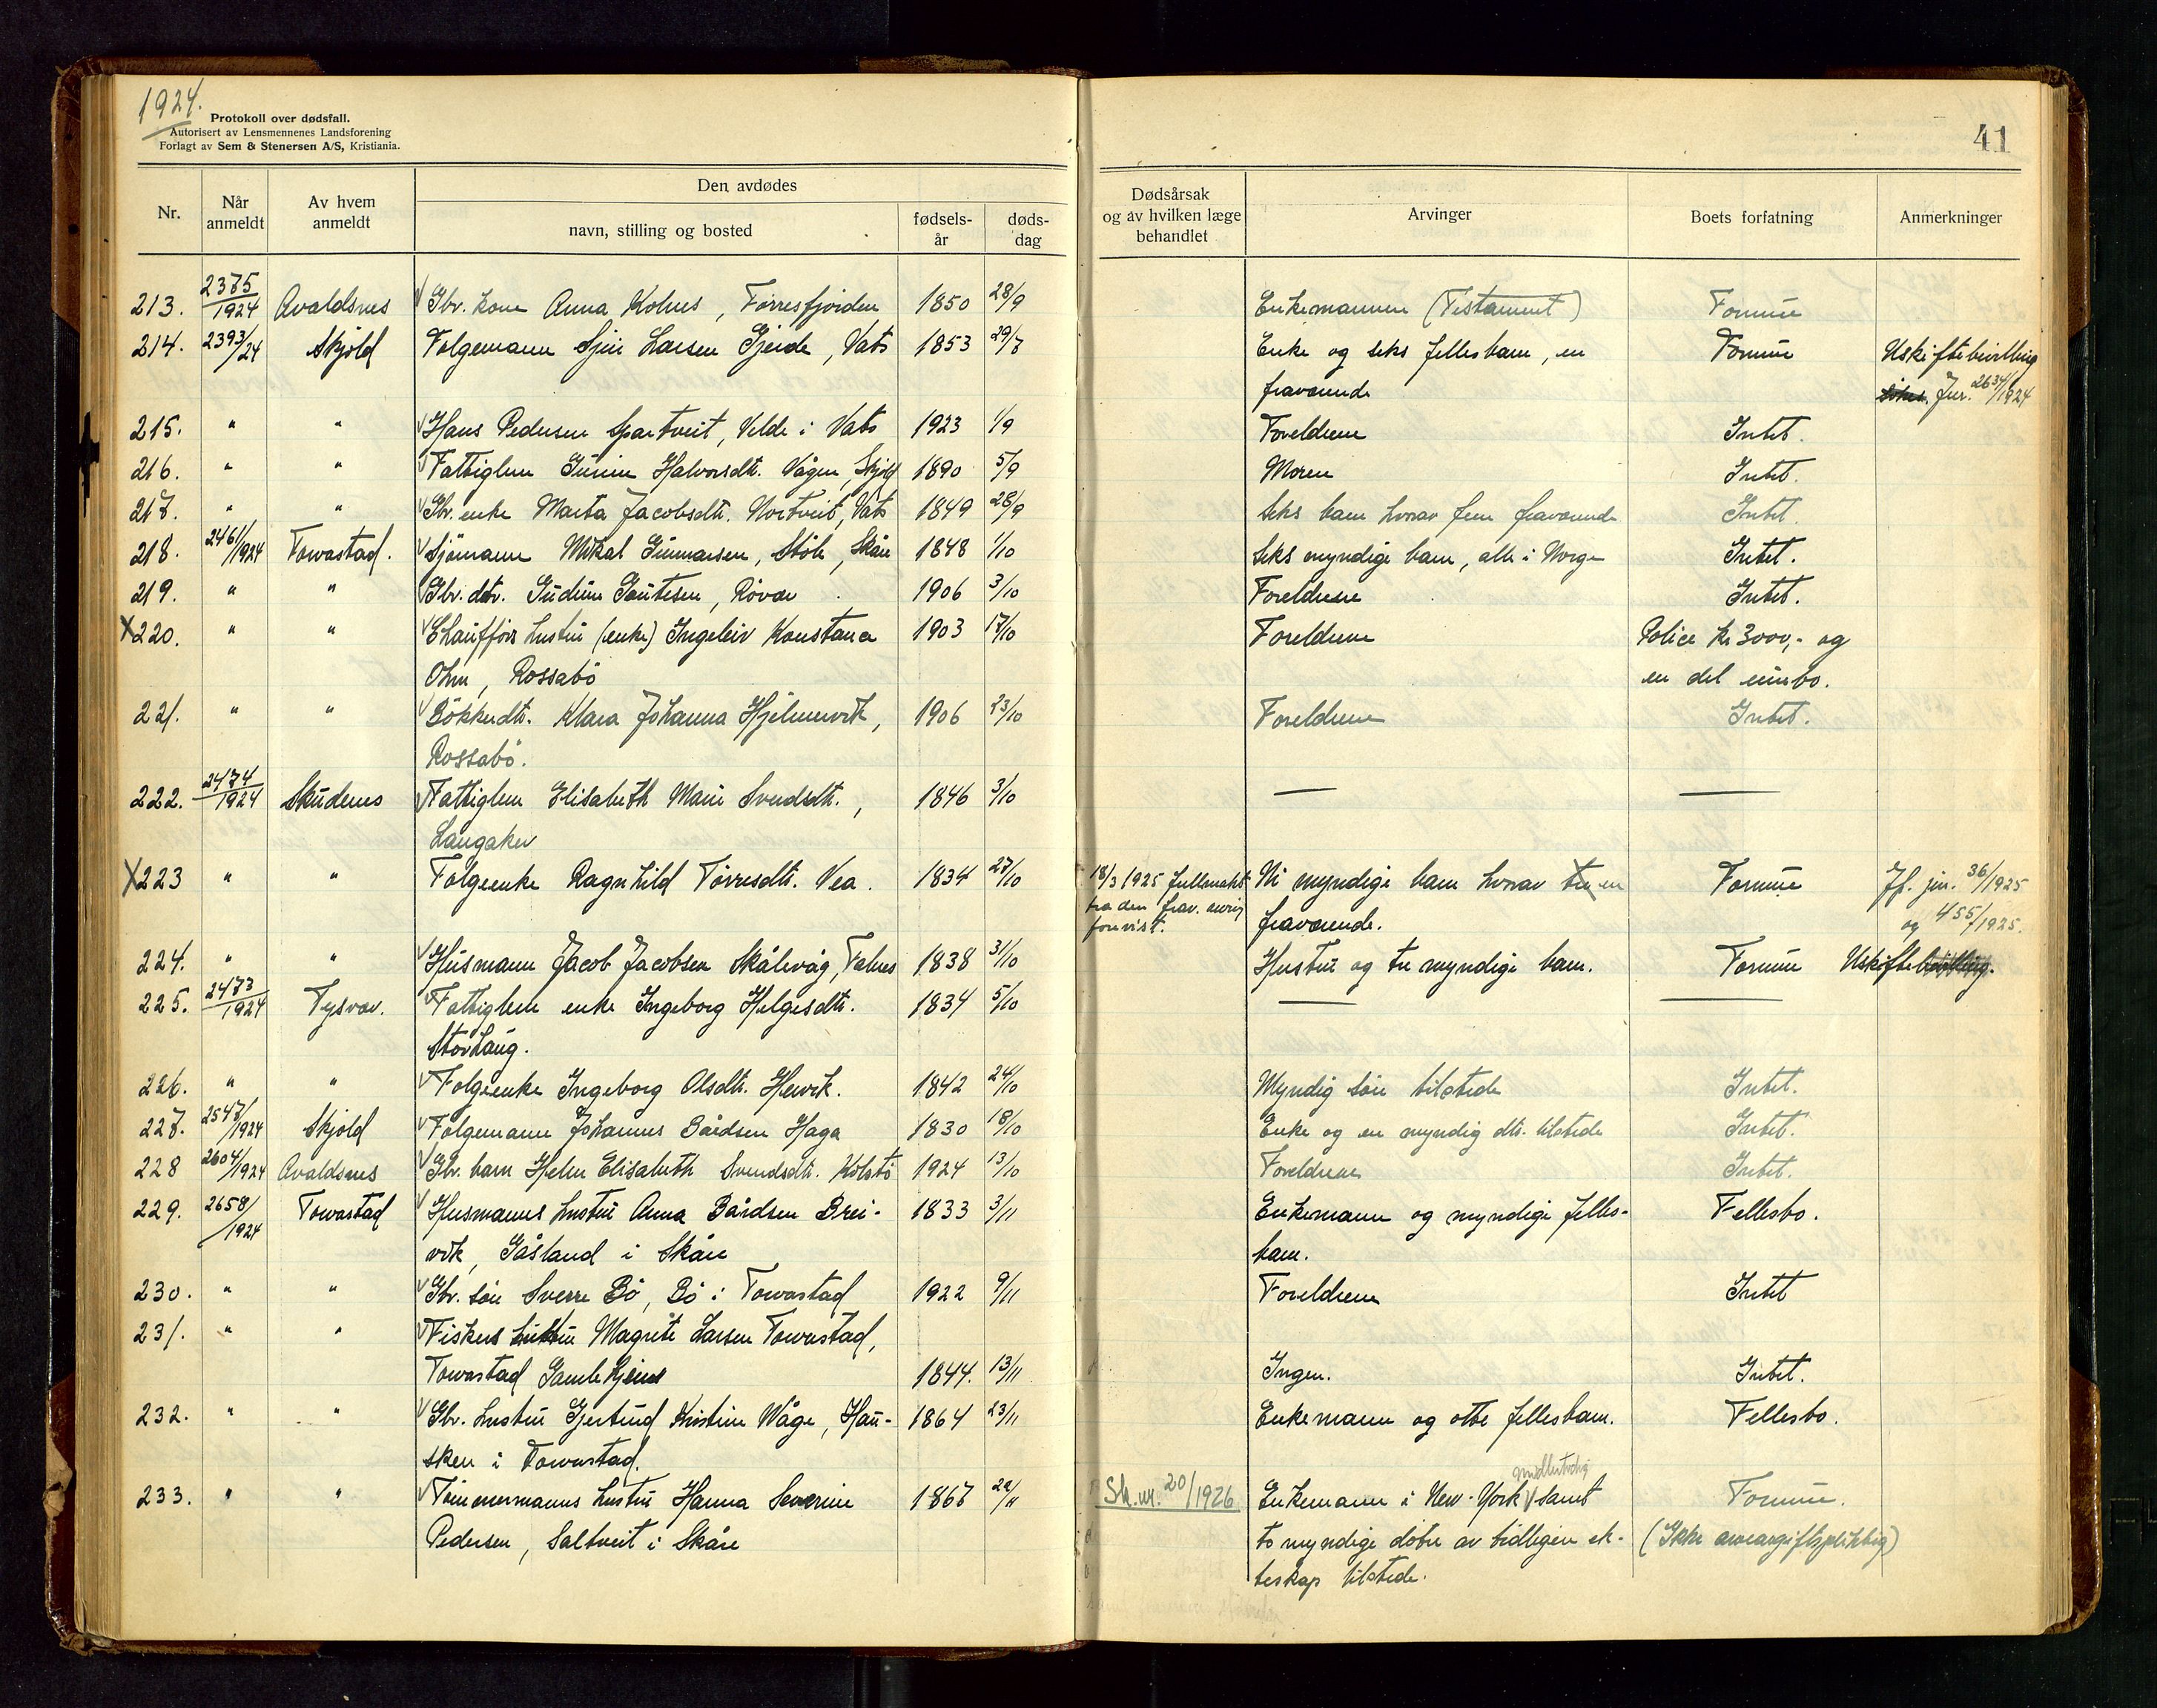 1924.
Protokoll over dødsfall.
Autorisert av Lensmennenes Landsforening
Forlagt av Sem & Stenersen A/S, Kristiania.
41
Nr. Når anmeldt Av hvem anmeldt Den avdødes navn, stilling og bosted fødselsår dødsdag Dødsårsak og av hvilken læge behandlet Arvinger Boets forfatning Anmerkninger
213. 2375/1924 Avaldsnes Gbr. kone Anna Kolnes, Førresfjorden 1850 28/9 Enkemannen (Testament) Formue
214. 2393/24 Skjold Følgemann Sjur Larsen Gjerde, Vats 1853 29/8 Enke og seks fellesbarn, en Formue Uskiftebevilling
fraværende Jnr. 2634/1924
215. " " Hans Pedersen Spartveit, Velde i Vats 1923 1/9 Foreldrene Intet.
216. " " Fattiglem Gurine Halvorsdtr. Vågen, Skjold 1890 5/9 Moren Intet.
217. " " Gbr. enke Marta Jacobsdtr. Nortveit, Vats 1849 28/9 Seks barn hvorav fem fraværende Intet.
218. 2461/1924 Torvastad. Sjømann Mikal Gunnarsen, Støle, Skåre 1848 1/10 Seks myndige barn, alle i Norge Intet.
219. " " Gbr. dtr. Gudrun Gautesen, Røvær 1906 3/10 Foreldrene Intet.
X220. " " Chaufførs hustru (enke) Ingeleiv Konstanse 1903 17/10 Foreldrene Police kr 3000,- og
Ohm, Rossabø en del innbo.
221. " " Bøkkerdtr. Klara Johanna Hjelmervik, 1906 23/10 Foreldrene Intet.
Rossabø.
222. 2474/1924 Skudenes Fattiglem Elisabeth Marie Svendsdtr., 1846 3/10 — —
Langaker
X223 " " Følgeenke Ragnhild Tørresdtr. Vea. 1834 27/10 18/3 1925 fullmakt Ni myndige barn hvorav tre en Formue Jf. jnr. 36/1925
fra den frav. arving fraværende. og 455/1925.
forevist.
224. " " Husmann Jacob Jacobsen Skålevåg, Falnes 1838 31/10 Hustru og tre myndige barn. Formue Uskiftebevilling.
225. 2473/1924 Tysvær. Fattiglem enke Ingeborg Helgesdtr. 1834 5/10 — —
Storhaug.
226. " " Følgeenke Ingeborg Olsdtr. Hervik. 1842 24/10 Myndig søn tilstede Intet.
227. 2547/1924 Skjold Følgemann Johannes Bårdsen Haga 1830 18/10 Enke og en myndig dtr. tilstede Intet.
228 2604/1924 Avaldsnes Gbr. barn Helen Elisabeth Svendsdtr. Kolstø 1924 13/10 Foreldrene Intet.
229. 2658/1924 Torvastad Husmanns hustru Anna Bårdsen Brei- 1833 3/11 Enkemann og myndige felles- Fellesbo.
vik, Gåsland i Skåre barn.
230. " " Gbr. søn Sverre Bø, Bø i Torvastad 1922 9/11 Foreldrene Intet
231. " " Fiskers hustru Magrete Larsen Torvastad,
Torvastad Gamlehjem 1844. 13/11 Ingen. Intet.
232. " " Gbr. hustru Gjertrud Kristine Våge, Hau- 1864 23/11 Enkemann og otte fellesbarn. Fellesbo.
sken i Torvastad.
233. " " Tømmermanns hustru Hanna Severine 1867 22/11 Sk. nr. 20/1926 Enkemann i New-York midlertidig samt Formue.
Pedersen, Saltveit i Skåre to myndige døtre av tidligere ek- (Ikke arveavgiftspliktig)
teskap tilstede.